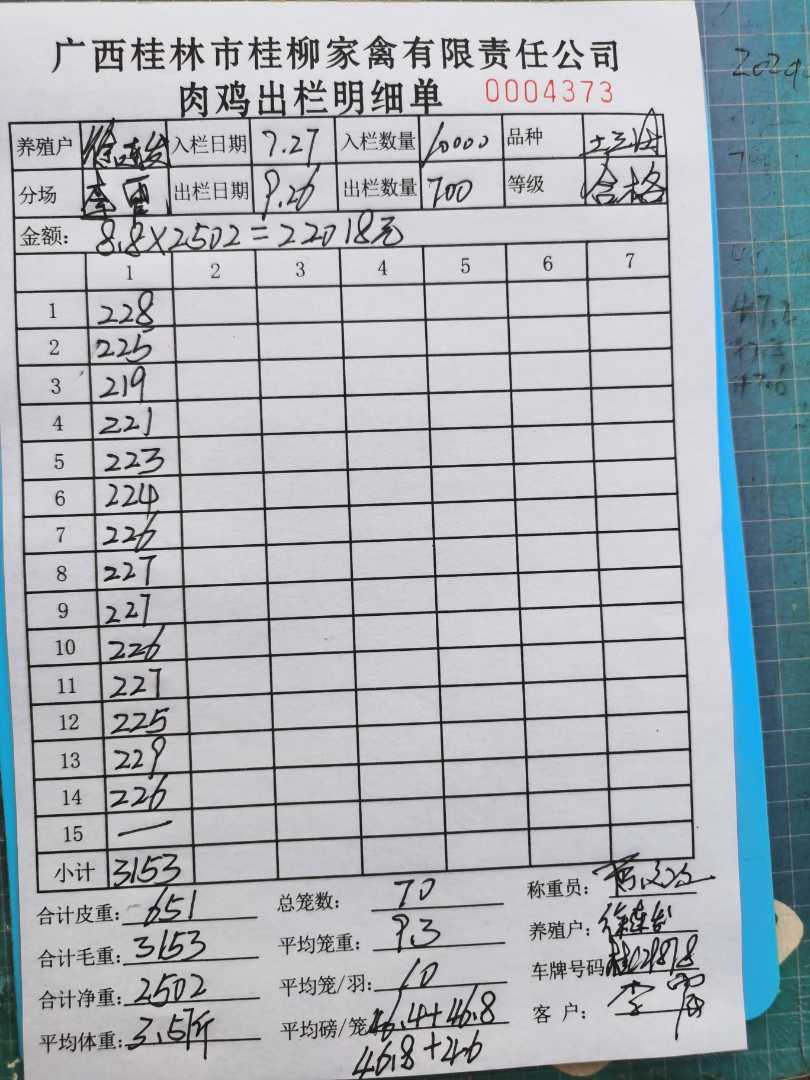 广西桂林市桂柳家禽有限责任公司
肉鸡出栏明细单 0004373
养殖户 入栏日期 7.27 入栏数量 10000 品种
分场 出栏日期 9.26 出栏数量 700 等级 合格
金额: 8.8×2502=22018元
1 2 3 4 5 6 7
1 228
2 225
3 219
4 221
5 223
6 224
7 226
8 227
9 227
10 226
11 227
12 225
13 229
14 226
15 —
小计 3153
合计皮重: 651 总笼数: 70 称重员:
合计毛重: 3153 平均笼重: 9.3 养殖户:
合计净重: 2502 平均笼/羽: 10 车牌号码
平均体重: 3.57斤 平均磅/笼 46.4+46.8 客户:
46.8+46